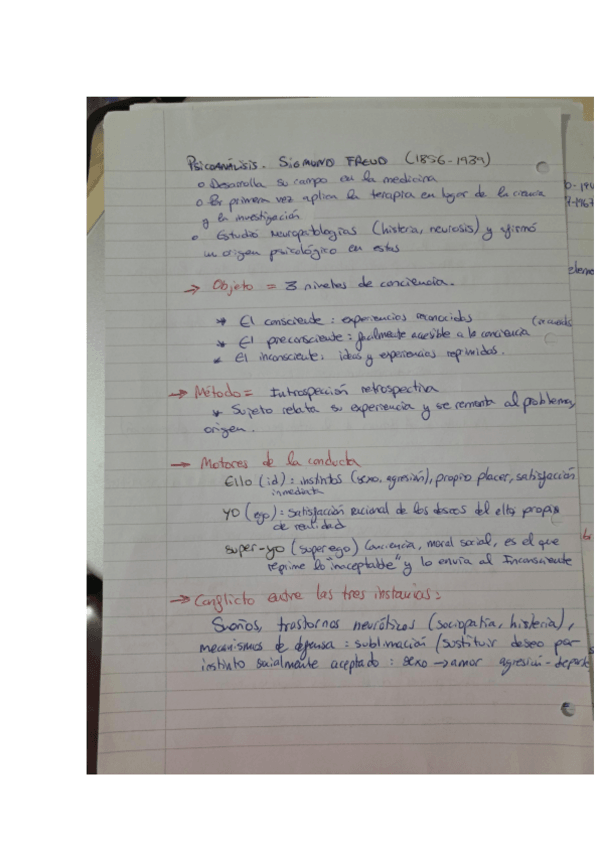 PSICOANÁLISIS. SIGMUND FREUD (1856-1939)
o Desarrolla su campo en la medicina
o Por primera vez aplica la terapia en lugar de la ciencia
y la investigación
o Estudió Neuropatologías (histeria, neurosis) y afirmó
un origen psicológico en estas
→ Objeto = 3 niveles de conciencia.
* El consciente: experiencias reconocidas
* El preconsciente: facilmente accesible a la conciencia
* El inconsciente: ideas y experiencias reprimidas.
→ Método = Introspección retrospectiva
* Sujeto relata su experiencia y se remonta al problema,
origen.
→ Motores de la conducta
Ello (id): instintos (sexo, agresión), propio placer, satisfacción
inmediata
YO (ego): satisfacción racional de los deseos del ello, propio
de realidad
super-yo (superego) Conciencia, moral social, es el que
reprime lo "inaceptable" y lo envía al Inconsciente
→ Conflicto entre las tres instancias:
Sueños, trastornos neuróticos (sociopatía, histeria),
mecanismos de defensa: sublimación (sustituir deseo por
instinto socialmente aceptado: sexo → amor agresión - deporte
7-1967
eleme